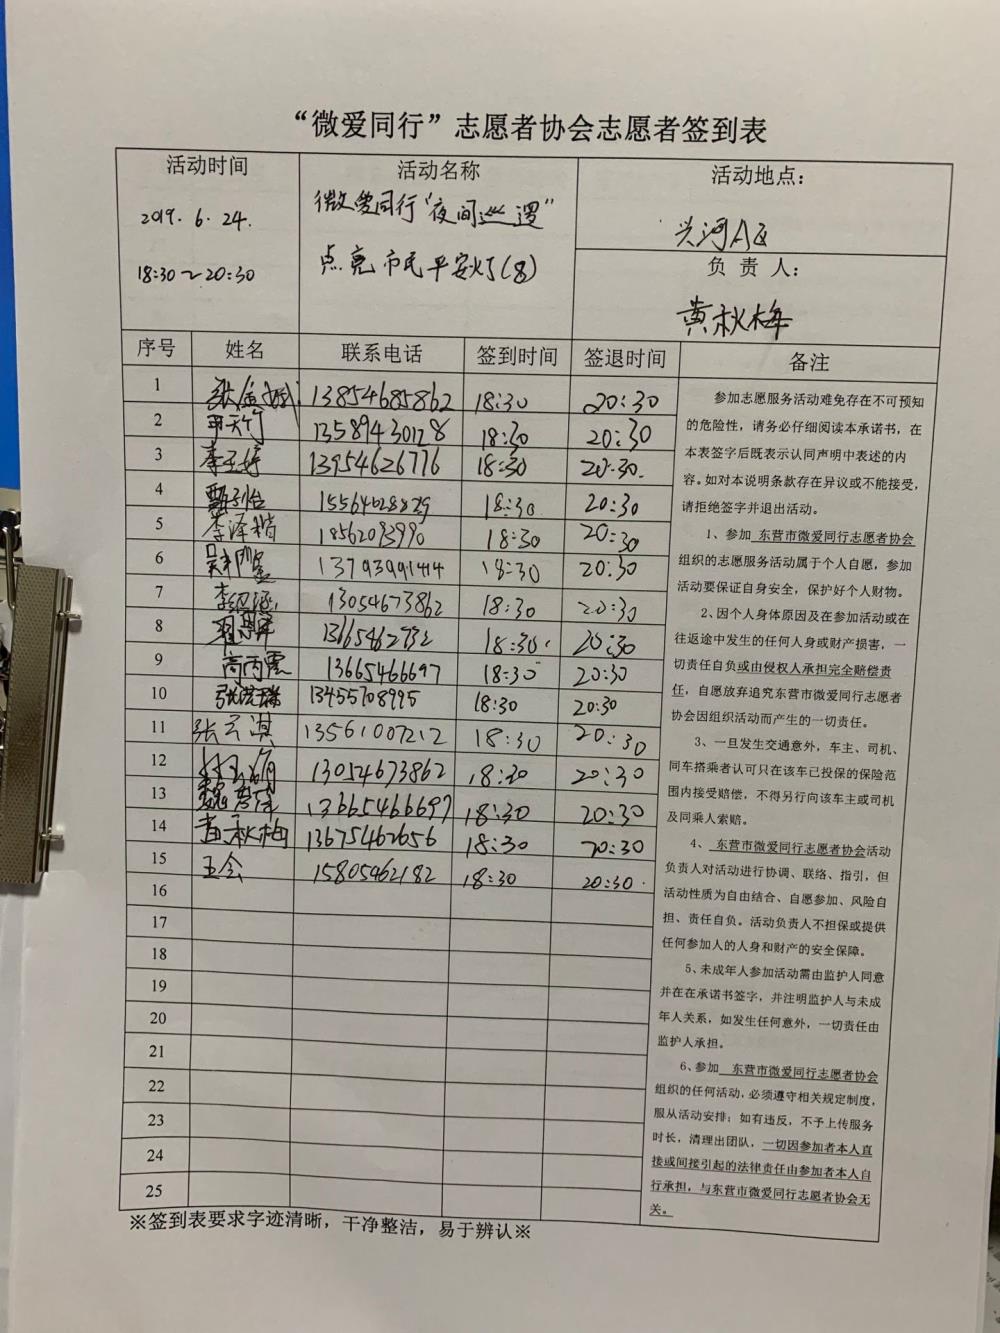 “微爱同行”志愿者协会志愿者签到表
活动时间
2019. 6. 24.
18:30～20:30
活动名称
微爱同行“夜间巡逻”
点亮市民平安灯(8)
活动地点：
兴河A区
负 责 人：
黄秋梅
序号 姓名 联系电话 签到时间 签退时间 备注
1 13854685862 18:30 20:30
2 13589430128 18:30 20:30
3 13954626776 18:30 20:30.
4 18:30 20:30
5 李泽楷 18562093990 18:30 20:30
6 13793991414 18:30 20:30
7 13054673862 18:30 20:30
8 18:30 20:30
9 高丙震 13665466697 18:30 20:30
10 13455708995 18:30 20:30
11 张云淇 13561007212 18:30 20:30
12 13054673862 18:30 20:30
13 13665466697 18:30 20:30
14 黄秋梅 13675462656 18:30 20:30
15 王会 15805462182 18:30 20:30.
16
17
18
19
20
21
22
23
24
25
参加志愿服务活动难免存在不可预知
的危险性，请务必仔细阅读本承诺书，在
本表签字后既表示认同声明中表述的内
容。如对本说明条款存在异议或不能接受，
请拒绝签字并退出活动。
1、参加 东营市微爱同行志愿者协会
组织的志愿服务活动属于个人自愿，参加
活动要保证自身安全，保护好个人财物。
2、因个人身体原因及在参加活动或在
往返途中发生的任何人身或财产损害，一
切责任自负或由侵权人承担完全赔偿责
任，自愿放弃追究东营市微爱同行志愿者
协会因组织活动而产生的一切责任。
3、一旦发生交通意外，车主、司机、
同车搭乘者认可只在该车已投保的保险范
围内接受赔偿，不得另行向该车主或司机
及同乘人索赔。
4、 东营市微爱同行志愿者协会活动
负责人对活动进行协调、联络、指引，但
活动性质为自由结合、自愿参加、风险自
担、责任自负。活动负责人不担保或提供
任何参加人的人身和财产的安全保障。
5、未成年人参加活动需由监护人同意
并在在承诺书签字，并注明监护人与未成
年人关系，如发生任何意外，一切责任由
监护人承担。
6、参加 东营市微爱同行志愿者协会
组织的任何活动，必须遵守相关规定制度，
服从活动安排；如有违反，不予上传服务
时长，清理出团队，一切因参加者本人直
接或间接引起的法律责任由参加者本人自
行承担，与东营市微爱同行志愿者协会无
关。
※签到表要求字迹清晰，干净整洁，易于辨认※